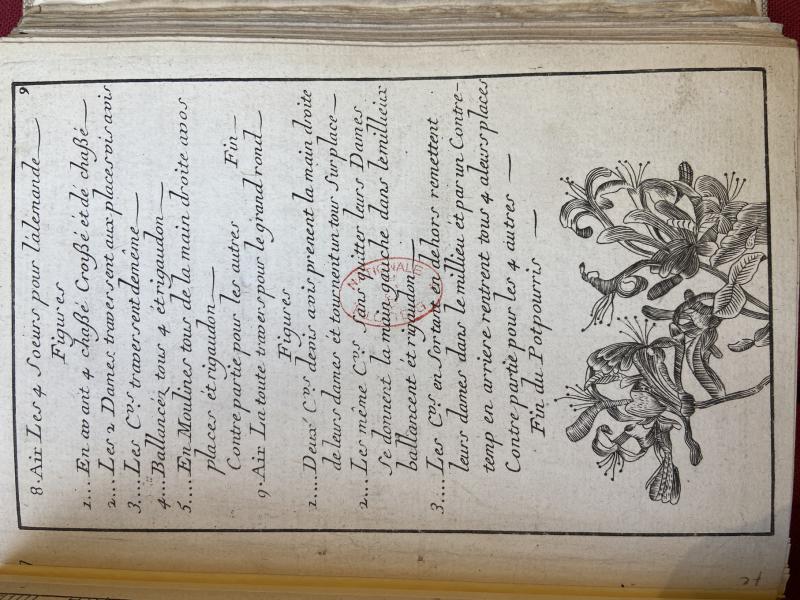 9
8. Air Les 4 Soeurs pour l'alemande
Figures
1.... En avant 4 chaßé Croßée et dé chaßé
2.... Les 2 Dames traversent aux places vis avis
3.... Les C.rs traversent demême
4... Ballancez tous 4 et rigaudon
5.... En Moulines tous de la main droite avos
places et rigaudon
Contre partie pour les autres Fin
9. Air La toute travers pour le grand rond
Figures
1.... Deux C.rs devis avis prenent la main droite
de leurs dames et tournent un tour Sur place
2.... Les même C.rs Sans quitter leurs Dames
Se donnent la main gauche dans le millieux
ballancent et rigaudon
3.... Les C.rs en Sortant en dehors remettent
leurs dames dans le millieu et par un Contre-
temp en arriere rentrent tous 4 a leurs places
Contre partie pour les 4 autres
Fin du Potpourris
NATIONALE